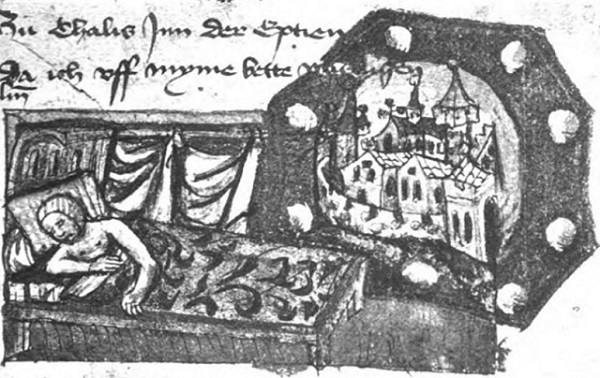 Zu Chalis Jnn der Eptien
Da ich vff myme bette